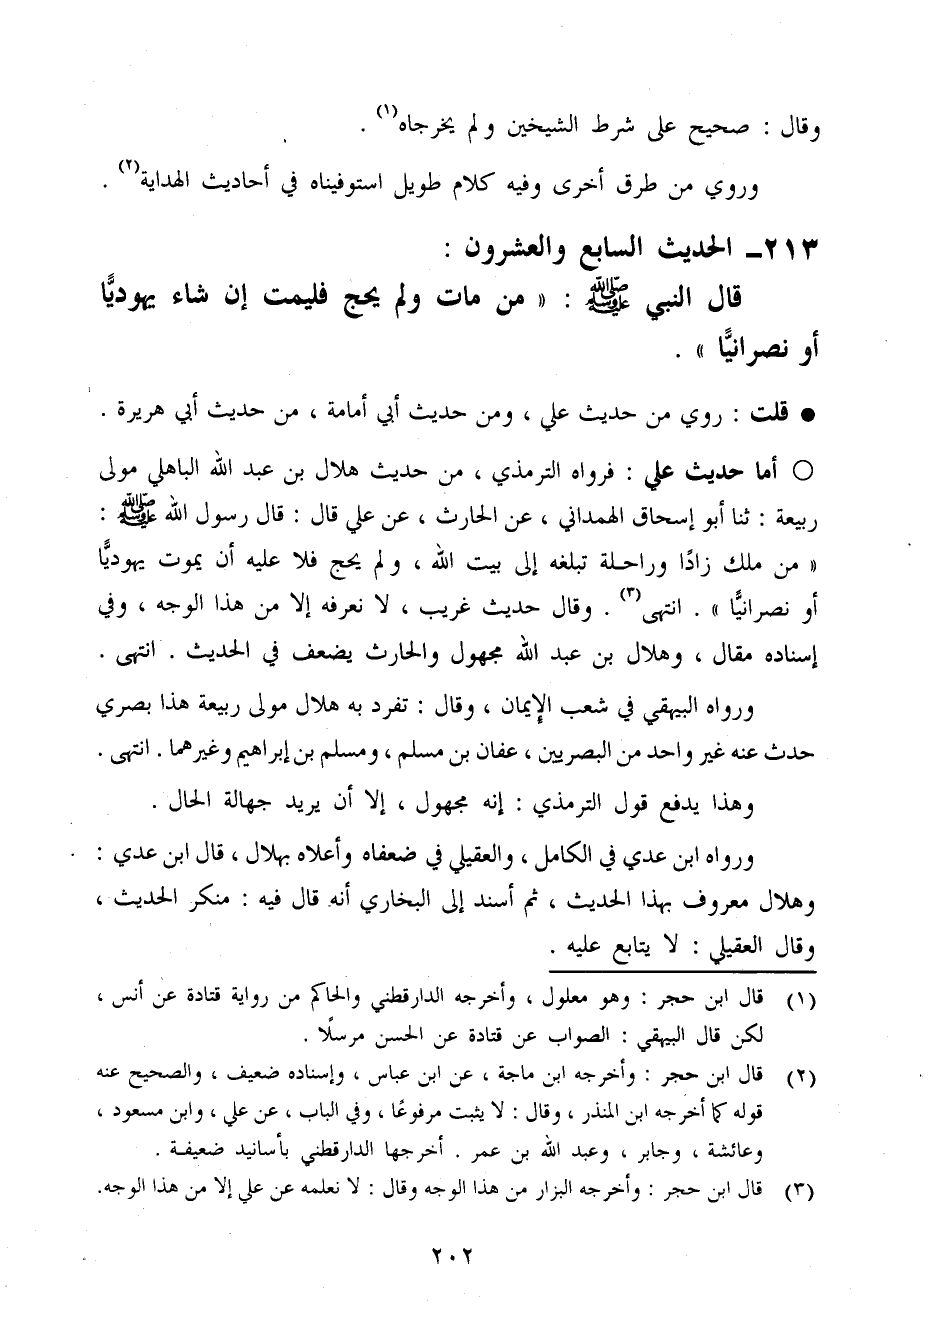 وقال : صحيح على شرط الشيخين ولم يخرجاه(١) .
وروي من طرق أخرى وفيه كلام طويل استوفيناه في أحاديث الهداية(٢) .
٢١٣ـ الحديث السابع والعشرون :
قال النبي ﷺ : « من مات ولم يحج فليمت إن شاء يهوديًّا
أو نصرانيًّا » .
● قلت : روي من حديث علي ، ومن حديث أبي أمامة ، من حديث أبي هريرة .
○ أما حديث علي : فرواه الترمذي ، من حديث هلال بن عبد الله الباهلي مولى
ربيعة : ثنا أبو إسحاق الهمداني ، عن الحارث ، عن علي قال : قال رسول الله ﷺ :
« من ملك زادًا وراحلة تبلغه إلى بيت الله ، ولم يحج فلا عليه أن يموت يهوديًّا
أو نصرانيًّا » . انتهى(٣) . وقال حديث غريب ، لا نعرفه إلا من هذا الوجه ، وفي
إسناده مقال ، وهلال بن عبد الله مجهول والحارث يضعف في الحديث . انتهى .
ورواه البيهقي في شعب الإيمان ، وقال : تفرد به هلال مولى ربيعة هذا بصري
حدث عنه غير واحد من البصريين ، عفان بن مسلم ، ومسلم بن إبراهيم وغيرهما . انتهى .
وهذا يدفع قول الترمذي : إنه مجهول ، إلا أن يريد جهالة الحال .
ورواه ابن عدي في الكامل ، والعقيلي في ضعفاه وأعلاه بهلال ، قال ابن عدي :
وهلال معروف بهذا الحديث ، ثم أسند إلى البخاري أنه قال فيه : منكر الحديث ،
وقال العقيلي : لا يتابع عليه .
(١) قال ابن حجر : وهو معلول ، وأخرجه الدارقطني والحاكم من رواية قتادة عن أنس ،
لكن قال البيهقي : الصواب عن قتادة عن الحسن مرسلًا .
(٢) قال ابن حجر : وأخرجه ابن ماجة ، عن ابن عباس ، وإسناده ضعيف ، والصحيح عنه
قوله كما أخرجه ابن المنذر ، وقال : لا يثبت مرفوعًا ، وفي الباب ، عن علي ، وابن مسعود ،
وعائشة ، وجابر ، وعبد الله بن عمر . أخرجها الدارقطني بأسانيد ضعيفة .
(٣) قال ابن حجر : وأخرجه البزار من هذا الوجه وقال : لا نعلمه عن علي إلا من هذا الوجه.
٢٠٢